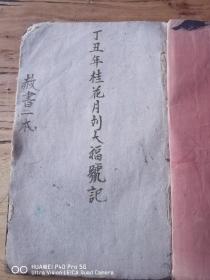 丁丑年桂花月刘大福號記
赦書一本
HUAWEI P40 Pro 5G
Ultra Vision LEICA Quad Camera